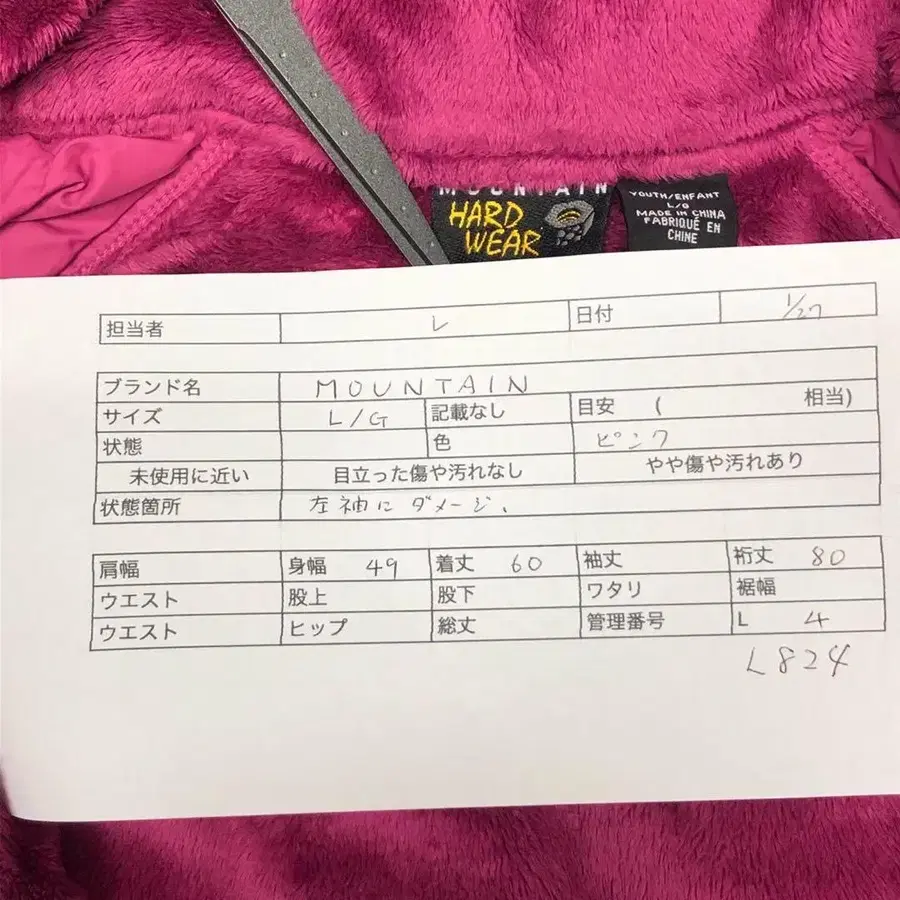 MOUNTAIN
HARD
WEAR
YOUTH/ENFANT
L/G
MADE IN CHINA
FABRIQUÉ EN
CHINE
担当者 L 日付 1/27
ブランド名 MOUNTAIN
サイズ L/G 記載なし 目安 ( 相当)
状態 色 ピンク
未使用に近い 目立った傷や汚れなし やや傷や汚れあり
状態箇所 左袖にダメージ.
肩幅 身幅 49 着丈 60 袖丈 裄丈 80
ウエスト 股上 股下 ワタリ 裾幅
ウエスト ヒップ 総丈 管理番号 L 4
L824